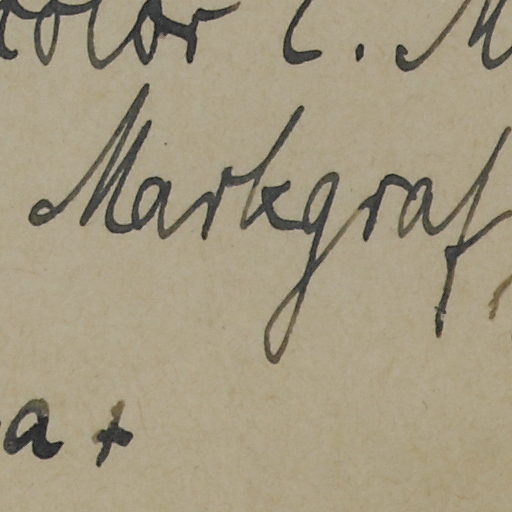 color C. M
Markgraf
a +